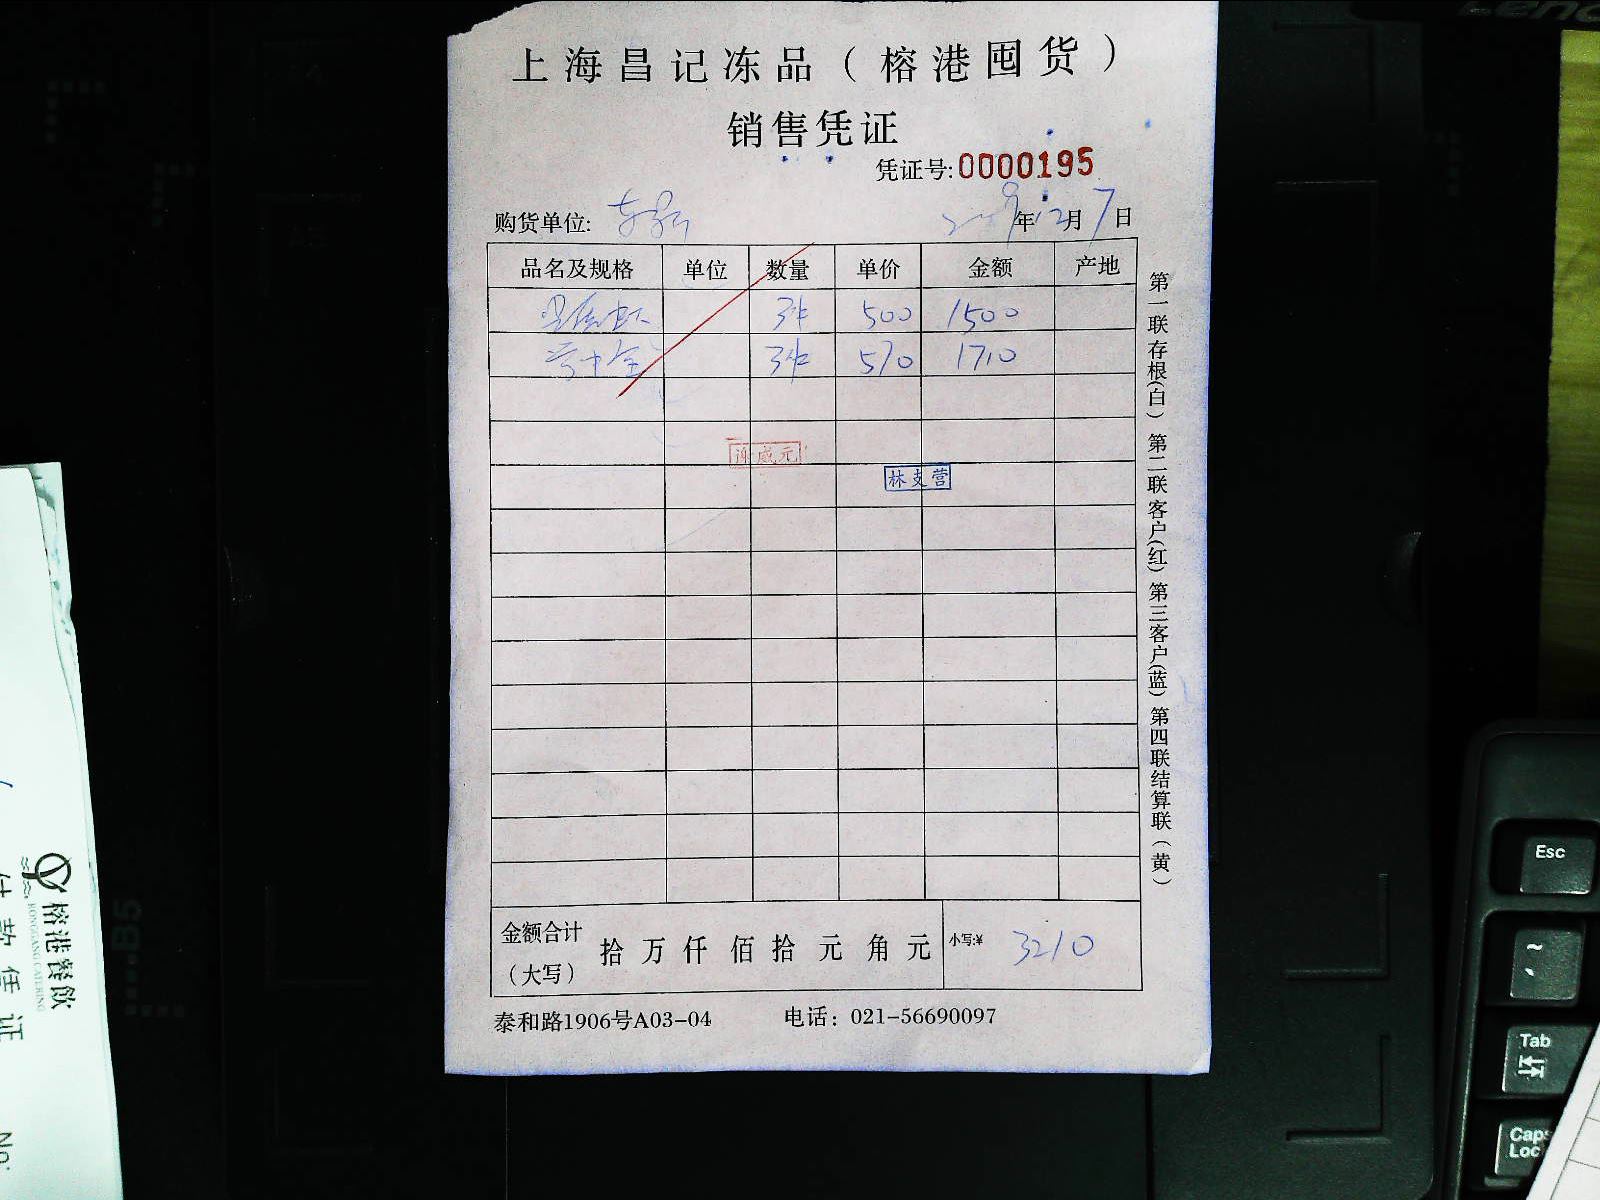 上海昌记冻品（榕港囤货）
销售凭证
凭证号:0000195
购货单位:
年12月7日
品名及规格 单位 数量 单价 金额 产地
3件 500 1500
3件 570 1710
谢威元
林支营
金额合计（大写） 拾万仟佰拾元角元 小写:¥ 3210
泰和路1906号A03-04 电话：021-56690097
第一联存根(白) 第二联客户(红) 第三客户(蓝) 第四联结算联(黄)
榕港餐飲
RONGGANG CATERING
付款凭证
No:
B5
Esc
~
Tab
Caps
Loc